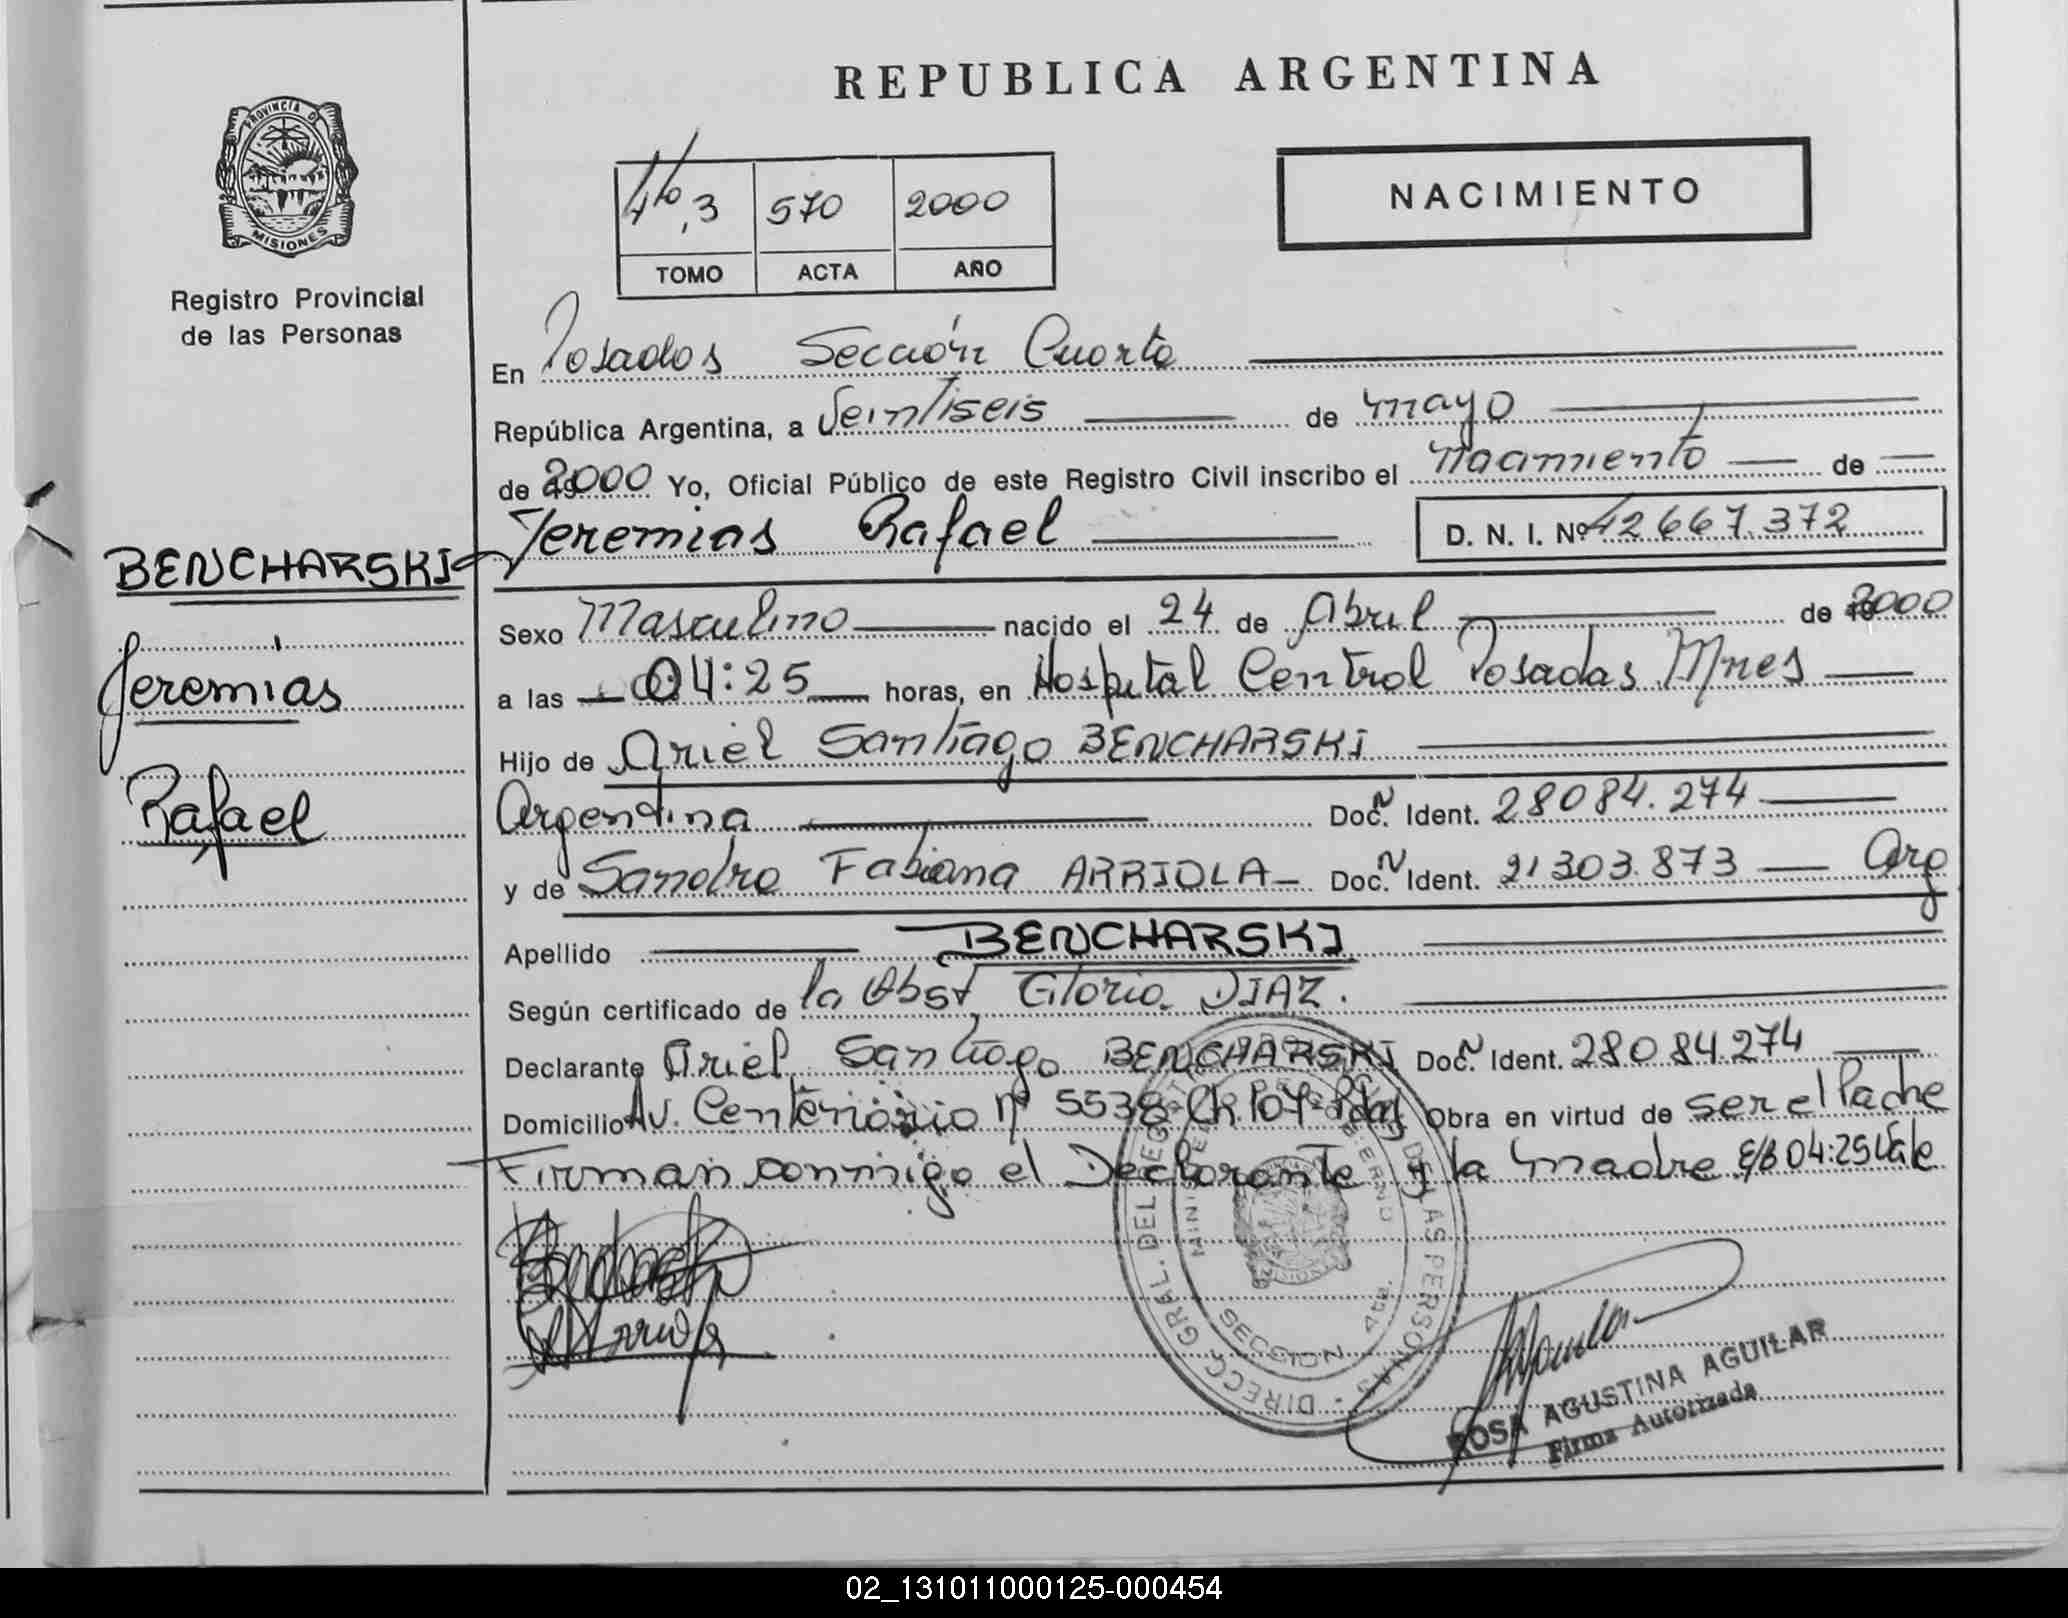 REPUBLICA ARGENTINA
PROVINCIA DE
MISIONES
Registro Provincial
de las Personas
4to, 3 570 2000
TOMO ACTA AÑO
NACIMIENTO
En Posadas Sección Cuarta
República Argentina, a Veintiseis de mayo
de 2000 Yo, Oficial Público de este Registro Civil inscribo el Nacimiento de
BENCHARSKI Jeremias Rafael D. N. I. Nº 42 667.372
Jeremias
Rafael
Sexo Masculino nacido el 24 de Abril de 2000
a las 04:25 horas, en Hospital Central Posadas Mnes
Hijo de Ariel Santiago BENCHARSKI
Argentina Doc. N Ident. 28084.274
y de Sandra Fabiana ARRIOLA Doc. N Ident. 21303.873 Arg
Apellido BENCHARSKI
Según certificado de la Obst, Gloria DIAZ.
Declarante Ariel Santiago BENCHARSKI Doc. N Ident. 28084274
Domicilio Av. Centenario nº 5538 Ch. 107 Pdas Obra en virtud de ser el Padre
Firman conmigo el Declarante y la madre E/B 04:25 Vale
DIRECC. GRAL. DEL REGISTRO DE LAS PERSONAS
SECCION 4ta.
ROSA AGUSTINA AGUILAR
Firma Autorizada
02_131011000125-000454